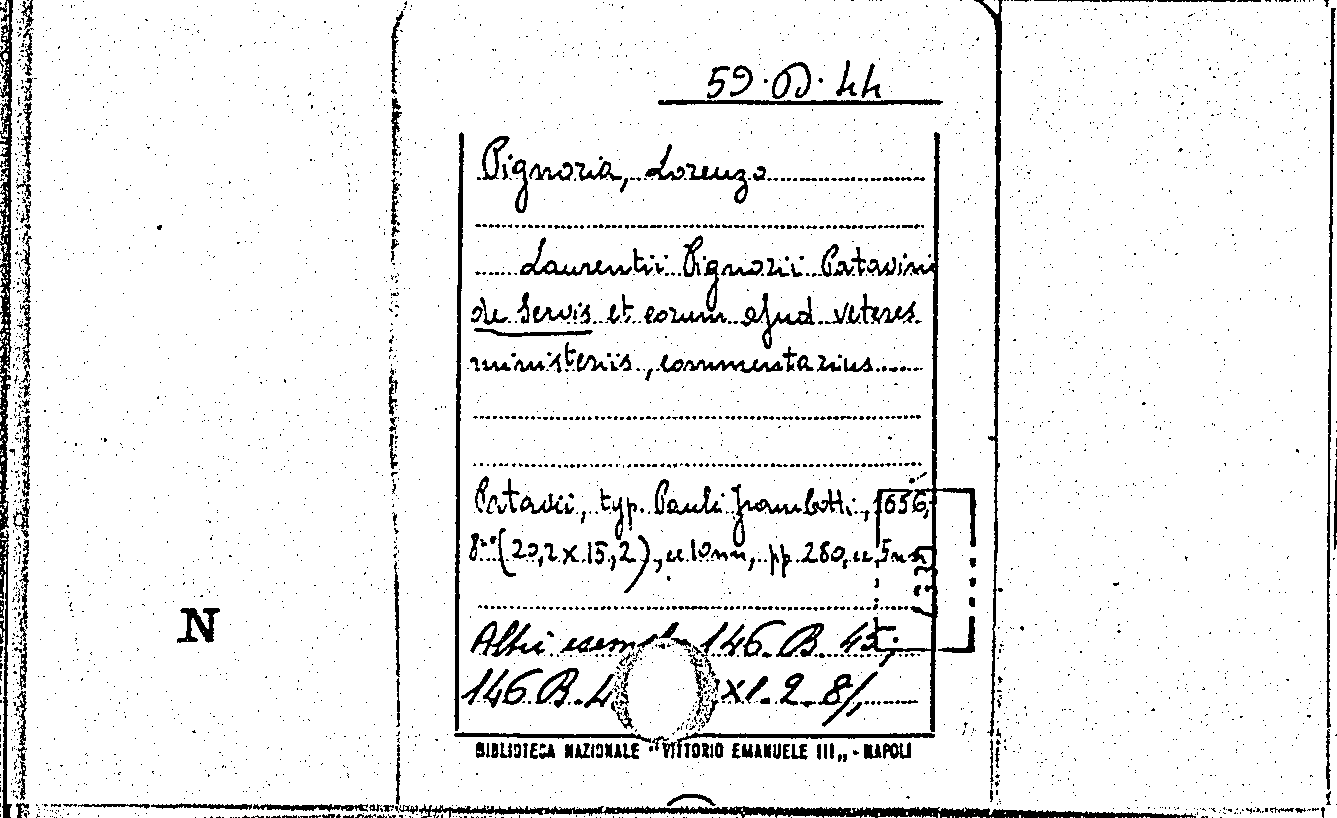 59.D.44
Pignoria, Lorenzo
Laurentii Pignorii Patavini
de Servis et eorum apud veteres
ministeriis, commentarius
Patavii, typ. Pauli Frambotti, 1656,
8° (20,2 x 15,2), cc 10 nn, pp. 280, cc 5 nn
Altri esempl 146.B.45;
146.B.4 XI.2.8/,
N
BIBLIOTECA NAZIONALE "VITTORIO EMANUELE III„ - NAPOLI